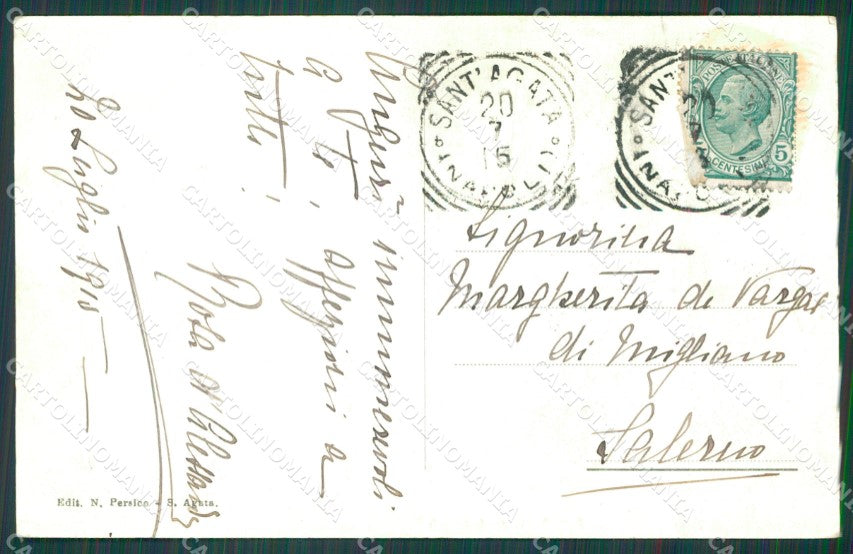 Auguri innumerevoli
a Te, affezioni a
tutti!
Rosa d'Alessandro
20 Luglio 1915
Edit. N. Persico - S. Agata.
SANT'AGATA
20
7
15
(NAPOLI)
SANT'
20
7
(NAPO
POSTE ITALIANE
CENTESIMI 5
Signorina
Margherita de Vargas
di Migliano
Salerno
CARTOLINOMANIA